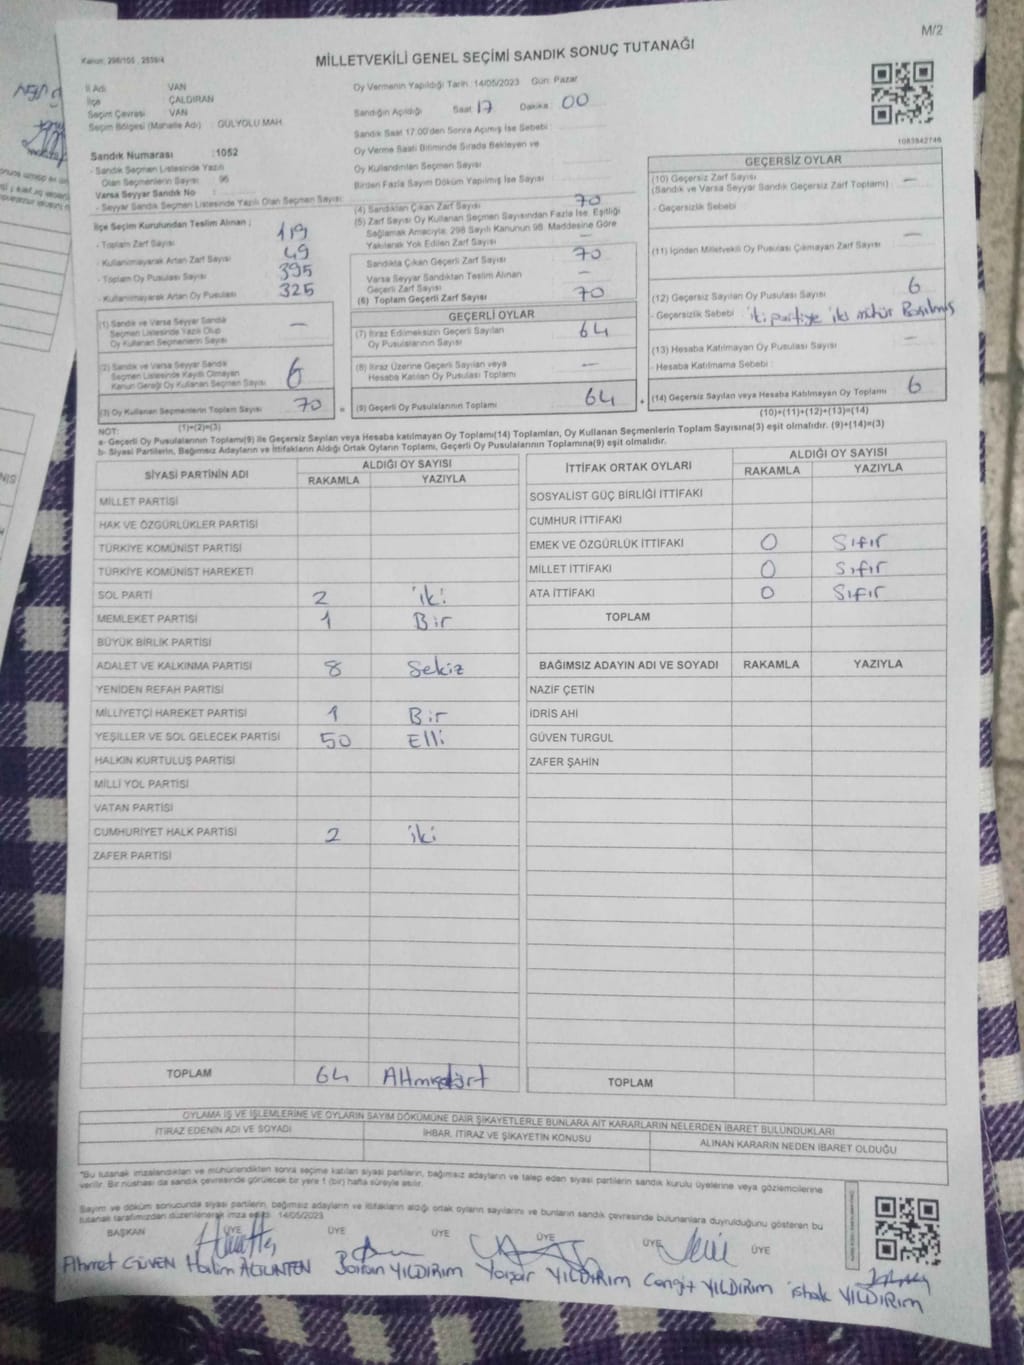 M/2
MİLLETVEKİLİ GENEL SEÇİMİ SANDIK SONUÇ TUTANAĞI
Kanun: 298/105 , 2839/4
İl Adı VAN
İlçe ÇALDIRAN
Seçim Çevresi VAN
Seçim Bölgesi (Mahalle Adı) : GÜLYOLU MAH.
Sandık Numarası :1052
- Sandık Seçmen Listesinde Yazılı
Olan Seçmenlerin Sayısı : 96
Varsa Seyyar Sandık No :
- Seyyar Sandık Seçmen Listesinde Yazılı Olan Seçmen Sayısı:
Oy Vermenin Yapıldığı Tarih :14/05/2023 Gün: Pazar
Sandığın Açıldığı Saat 17 Dakika 00
Sandık Saat 17:00'den Sonra Açımış İse Sebebi :
Oy Verme Saati Bitiminde Sırada Bekleyen ve
Oy Kullandırılan Seçmen Sayısı
Birden Fazla Sayım Döküm Yapılmış İse Sayısı
1083842746
İlçe Seçim Kurulundan Teslim Alınan ;
- Toplam Zarf Sayısı 119
- Kullanılmayarak Artan Zarf Sayısı 49
- Toplam Oy Pusulası Sayısı 395
- Kullanılmayarak Artan Oy Pusulası 325
(1) Sandık ve Varsa Seyyar Sandık
Seçmen Listesinde Yazılı Olup
Oy Kullanan Seçmenlerin Sayısı —
(2) Sandık ve Varsa Seyyar Sandık
Seçmen Listesinde Kayıtlı Olmayan
Kanun Gereği Oy Kullanan Seçmen Sayısı 6
(3) Oy Kullanan Seçmenlerin Toplam Sayısı 70
(1)+(2)=(3)
(4) Sandıktan Çıkan Zarf Sayısı 70
(5) Zarf Sayısı Oy Kullanan Seçmen Sayısından Fazla İse, Eşitliği
Sağlamak Amacıyla, 298 Sayılı Kanunun 98. Maddesine Göre
Yakılarak Yok Edilen Zarf Sayısı —
Sandıkta Çıkan Geçerli Zarf Sayısı 70
Varsa Seyyar Sandıktan Teslim Alınan
Geçerli Zarf Sayısı —
(6) Toplam Geçerli Zarf Sayısı 70
GEÇERLİ OYLAR
(7) İtiraz Edilmeksizin Geçerli Sayılan
Oy Pusulalarının Sayısı 64
(8) İtiraz Üzerine Geçerli Sayılan veya
Hesaba Katılan Oy Pusulası Toplamı —
= (9) Geçerli Oy Pusulalarının Toplamı 64 +
GEÇERSİZ OYLAR
(10) Geçersiz Zarf Sayısı
(Sandık ve Varsa Seyyar Sandık Geçersiz Zarf Toplamı) —
- Geçersizlik Sebebi
(11) İçinden Milletvekili Oy Pusulası Çıkmayan Zarf Sayısı —
(12) Geçersiz Sayılan Oy Pusulası Sayısı 6
- Geçersizlik Sebebi iki partiye iki mühür Basılmış
(13) Hesaba Katılmayan Oy Pusulası Sayısı —
- Hesaba Katılmama Sebebi :
(14) Geçersiz Sayılan veya Hesaba Katılmayan Oy Toplamı 6
(10)+(11)+(12)+(13)=(14)
NOT:
a- Geçerli Oy Pusulalarının Toplamı(9) ile Geçersiz Sayılan veya Hesaba katılmayan Oy Toplamı(14) Toplamları, Oy Kullanan Seçmenlerin Toplam Sayısına(3) eşit olmalıdır. (9)+(14)=(3)
b- Siyasi Partilerin, Bağımsız Adayların ve İttifakların Aldığı Ortak Oyların Toplamı, Geçerli Oy Pusulalarının Toplamına(9) eşit olmalıdır.
SİYASİ PARTİNİN ADI ALDIĞI OY SAYISI
RAKAMLA YAZIYLA
MİLLET PARTİSİ
HAK VE ÖZGÜRLÜKLER PARTİSİ
TÜRKİYE KOMÜNİST PARTİSİ
TÜRKİYE KOMÜNİST HAREKETİ
SOL PARTİ 2 iki
MEMLEKET PARTİSİ 1 Bir
BÜYÜK BİRLİK PARTİSİ
ADALET VE KALKINMA PARTİSİ 8 Sekiz
YENİDEN REFAH PARTİSİ
MİLLİYETÇİ HAREKET PARTİSİ 1 Bir
YEŞİLLER VE SOL GELECEK PARTİSİ 50 Elli
HALKIN KURTULUŞ PARTİSİ
MİLLİ YOL PARTİSİ
VATAN PARTİSİ
CUMHURİYET HALK PARTİSİ 2 iki
ZAFER PARTİSİ
TOPLAM 64 Altmışdört
İTTİFAK ORTAK OYLARI ALDIĞI OY SAYISI
RAKAMLA YAZIYLA
SOSYALİST GÜÇ BİRLİĞİ İTTİFAKI
CUMHUR İTTİFAKI
EMEK VE ÖZGÜRLÜK İTTİFAKI 0 Sıfır
MİLLET İTTİFAKI 0 Sıfır
ATA İTTİFAKI 0 Sıfır
TOPLAM
BAĞIMSIZ ADAYIN ADI VE SOYADI RAKAMLA YAZIYLA
NAZİF ÇETİN
İDRİS AHİ
GÜVEN TURGUL
ZAFER ŞAHİN
TOPLAM
OYLAMA İŞ VE İŞLEMLERİNE VE OYLARIN SAYIM DÖKÜMÜNE DAİR ŞİKAYETLERLE BUNLARA AİT KARARLARIN NELERDEN İBARET BULUNDUKLARI
İTİRAZ EDENİN ADI VE SOYADI İHBAR, İTİRAZ VE ŞİKAYETİN KONUSU ALINAN KARARIN NEDEN İBARET OLDUĞU
*Bu tutanak imzalandıktan ve mühürlendikten sonra seçime katılan siyasi partilerin, bağımsız adayların ve talep eden siyasi partilerin sandık kurulu üyelerine veya gözlemcilerine
verilir. Bir nüshası da sandık çevresinde görülecek bir yere 1 (bir) hafta süreyle asılır.
Sayım ve döküm sonucunda siyasi partilerin, bağımsız adayların ve ittifakların aldığı ortak oyların sayılarını ve bunların sandık çevresinde bulunanlara duyrulduğunu gösteren bu
tutanak tarafımızdan düzenlenerek imza edildi. 14/05/2023
BAŞKAN ÜYE ÜYE ÜYE ÜYE ÜYE ÜYE
Ahmet GÜVEN Halim Baran YILDIRIM Yaşar YILDIRIM Cengiz YILDIRIM ishak YILDIRIM